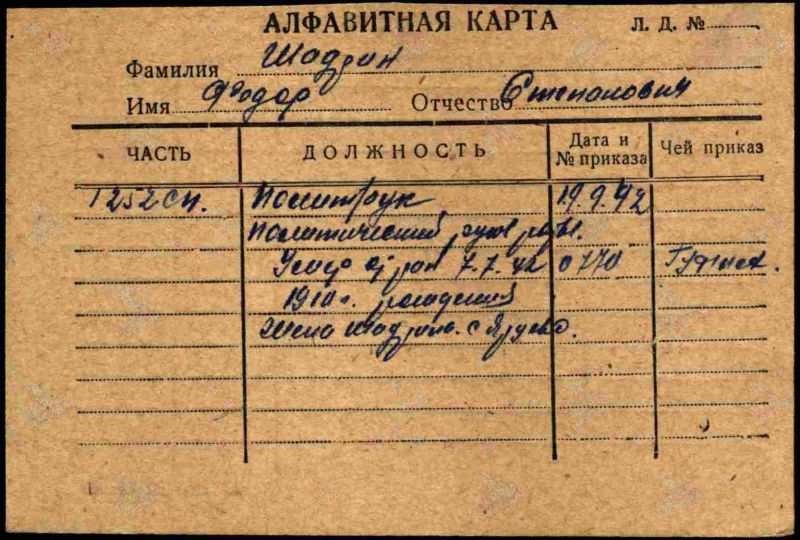 АЛФАВИТНАЯ КАРТА Л. Д. №
Фамилия Шадрин
Имя Федор Отчество Степанович
ЧАСТЬ ДОЛЖНОСТЬ Дата и № приказа Чей приказ
1252 сп. Политрук 19.9.42
Политический рук.
от ран 7.7.42 0770
1910 г. рождения
Жена Шадрина. с